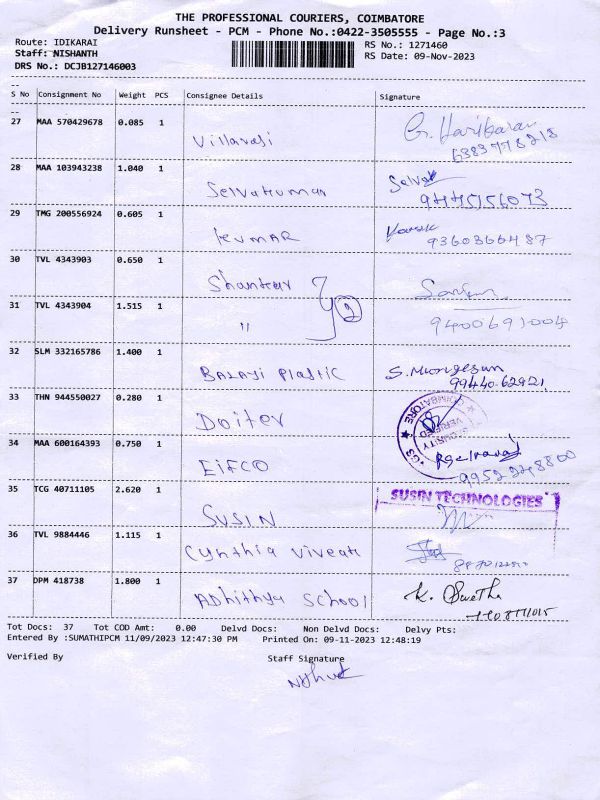 THE PROFESSIONAL COURIERS, COIMBATORE
Delivery Runsheet - PCM - Phone No.:0422-3505555 - Page No.:3
Route: IDIKARAI
Staff: NISHANTH
DRS No.: DCJB127146003
RS No.: 1271460
RS Date: 09-Nov-2023
S No Consignment No Weight PCS Consignee Details Signature
27 MAA 570429678 0.085 1 Villavasi G. Hariharan
6383778218
28 MAA 103943238 1.040 1 Selvakumar Selva
29 TMG 200556924 0.605 1 Kumar
9360366487
30 TVL 4343903 0.650 1 Shankar
31 TVL 4343904 1.515 1 " 2
9400691004
32 SLM 332165786 1.400 1 Balaji Plastic S. Murugesan
99440.62921
33 THN 944550027 0.280 1 Doitev
COIMBATORE
SECURITY
VERIFIED
34 MAA 600164393 0.750 1 EIFCO
9952248800
35 TCG 40711105 2.620 1 SUSIN SUSIN TECHNOLOGIES
36 TVL 9884446 1.115 1 Cynthia
37 DPM 418738 1.800 1 Adhithya School K. Swetha
Tot Docs: 37 Tot COD Amt: 0.00 Delvd Docs: Non Delvd Docs: Delvy Pts:
Entered By :SUMATHIPCM 11/09/2023 12:47:30 PM Printed On: 09-11-2023 12:48:19
Verified By Staff Signature